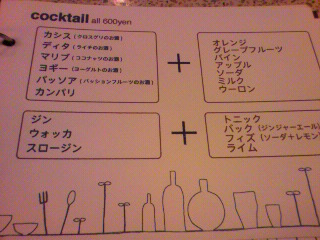 cocktail all 600yen
カシス (クロスグリのお酒)
ディタ (ライチのお酒)
マリブ (ココナッツのお酒)
ヨギー (ヨーグルトのお酒)
パッソア (パッションフルーツのお酒)
カンパリ
+
オレンジ
グレープフルーツ
パイン
アップル
ソーダ
ミルク
ウーロン
ジン
ウォッカ
スロージン
+
トニック
バック (ジンジャーエール)
フィズ (ソーダ+レモン)
ライム